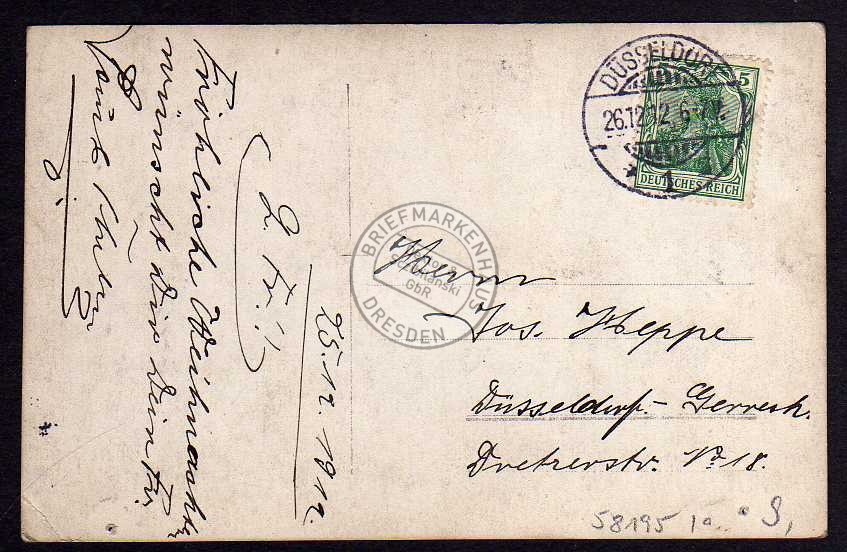 25.12.1912.
L. Fr.!
Fröhliche Weihnachten
wünscht Dir Dein Fr.
DÜSSELDORF
26.12.12. 6-7 N.
* 1
5
DEUTSCHES REICH
Herrn
Jos. Heppe
Düsseldorf-Gerresh.
Nr. 18.
BRIEFMARKENHAUS
GbR
DRESDEN
58195 1a